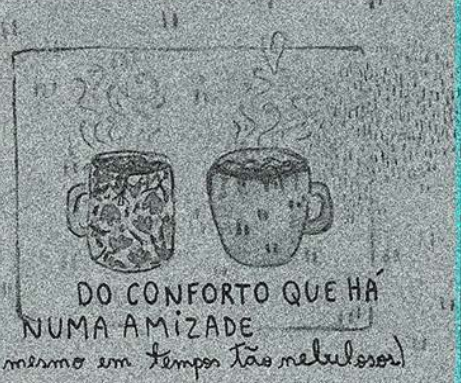 DO CONFORTO QUE HÁ
NUMA AMIZADE
mesmo em tempos tão nebulosos)